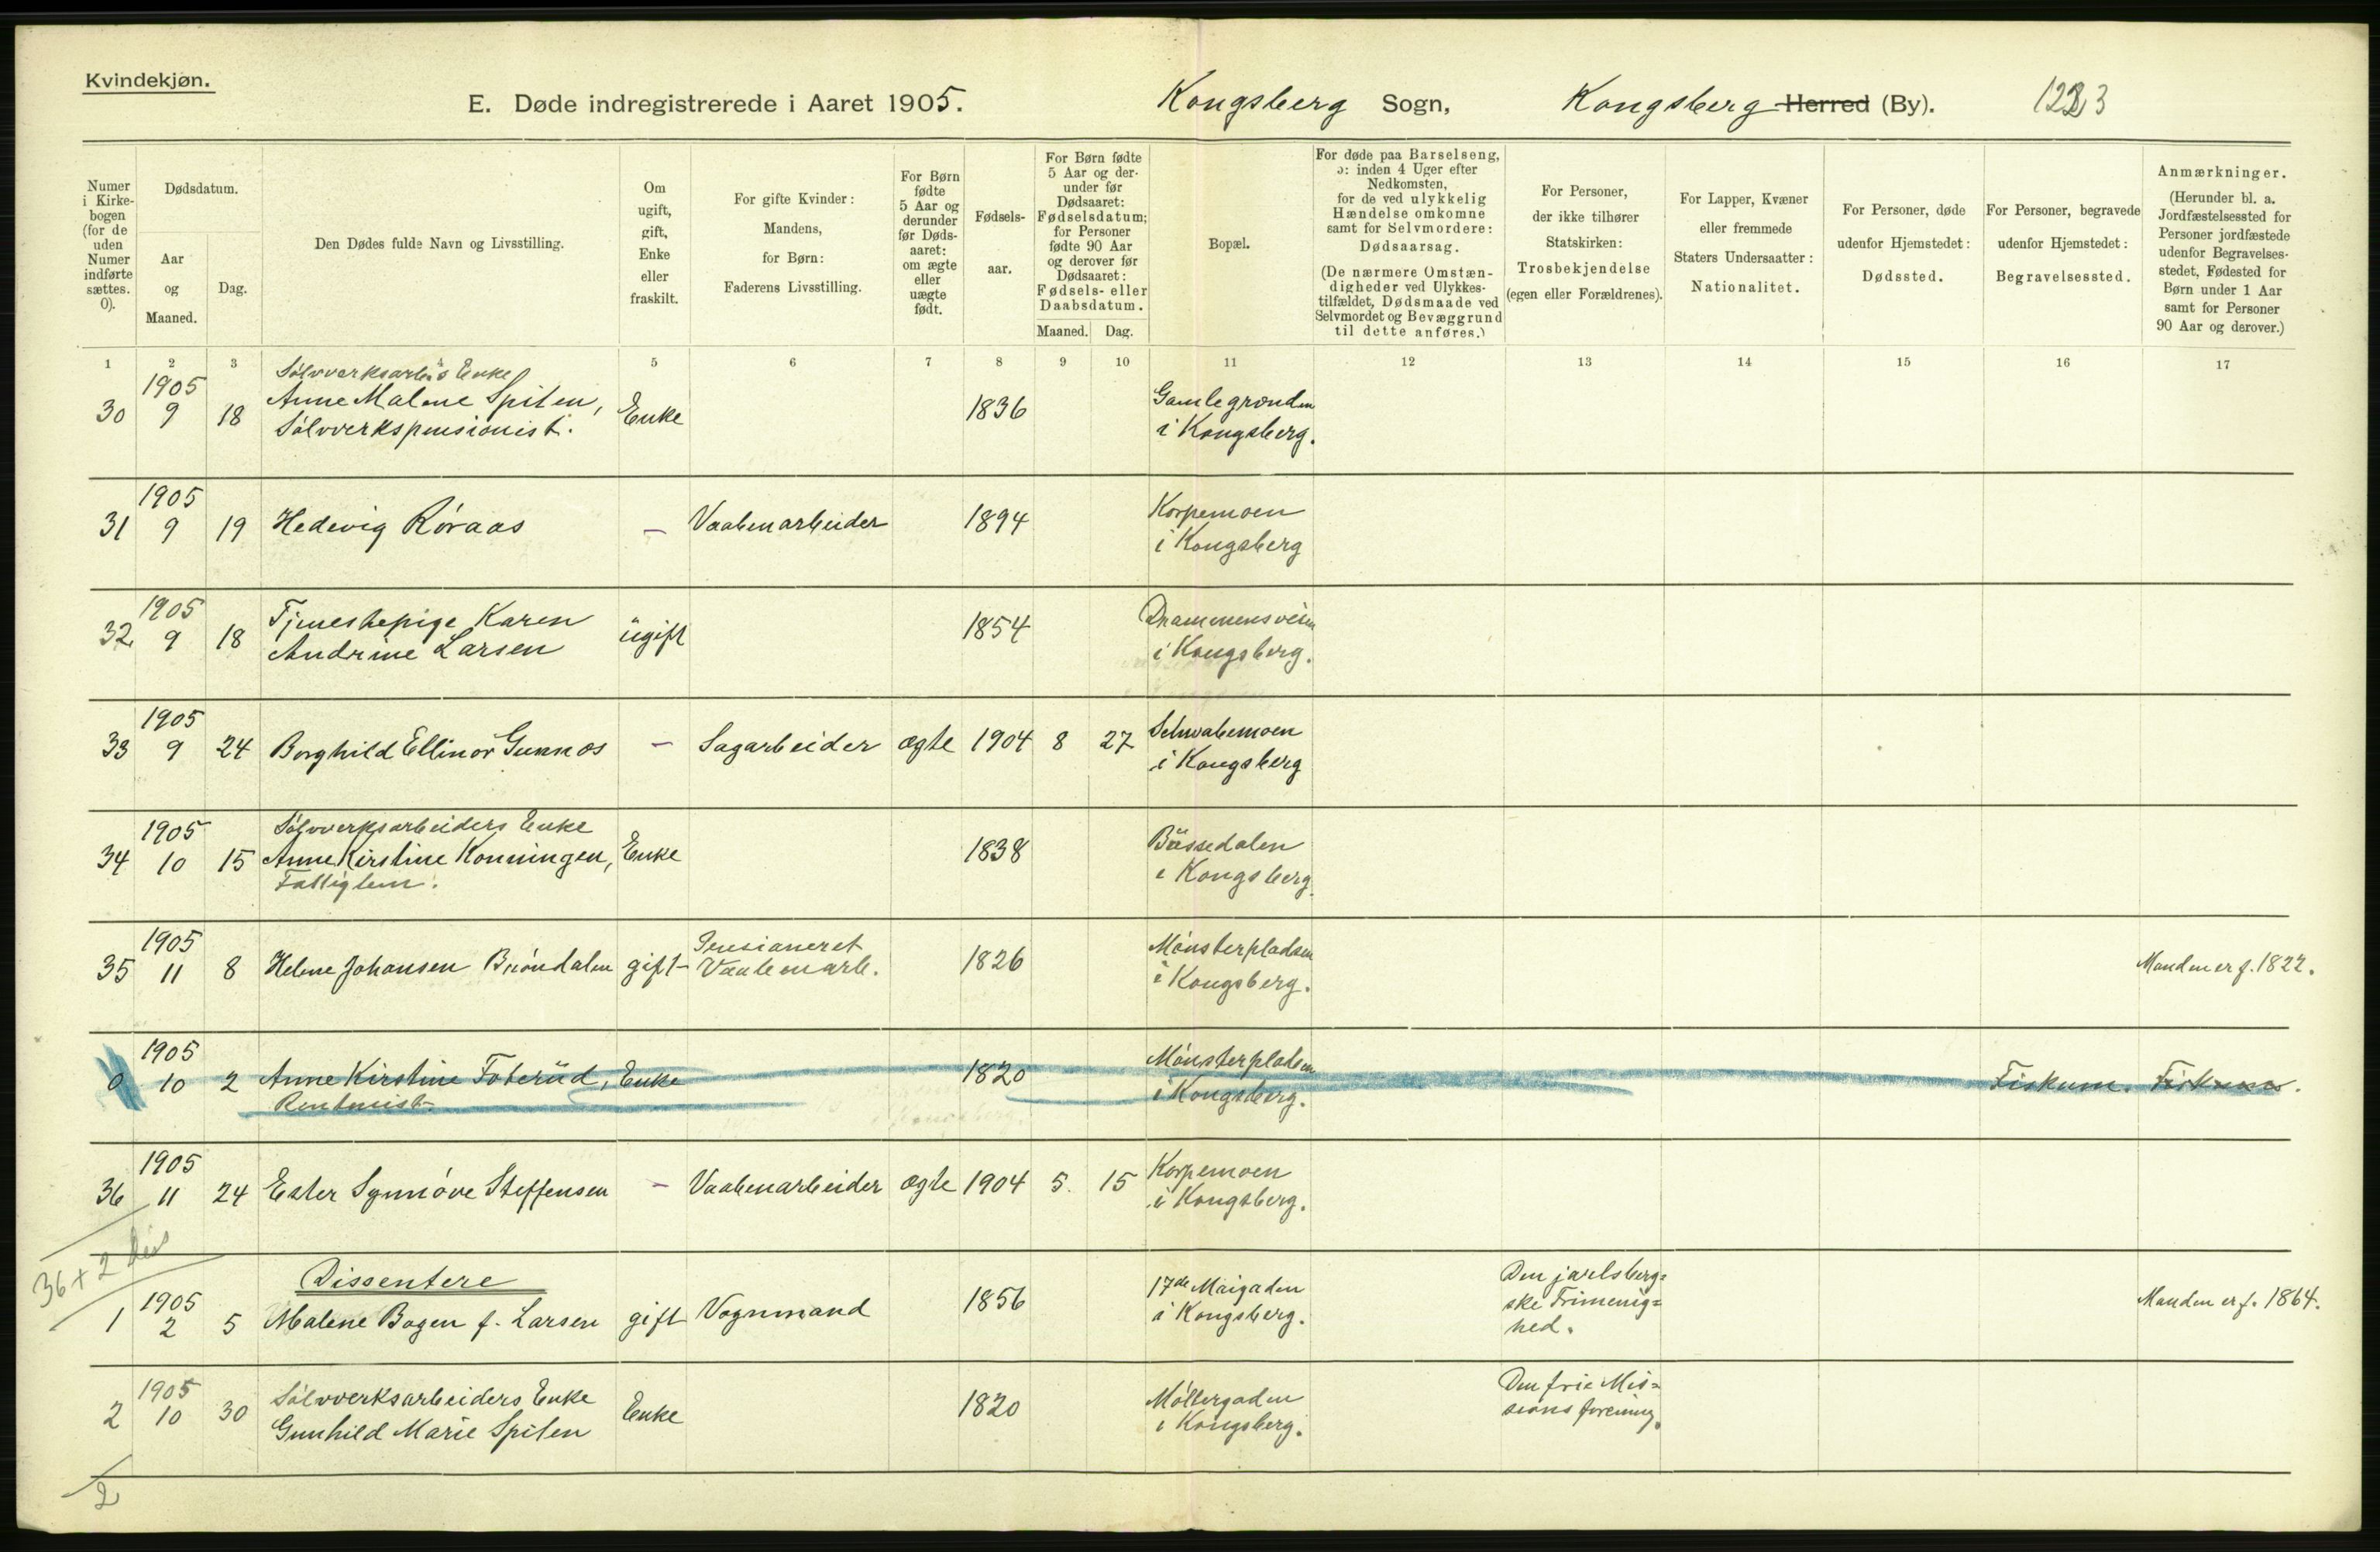 Kvindekjøn.
E. Døde indregistrerede i Aaret 1905. Kongsberg Sogn, Kongsberg Herred (By).
Numer i Kirkebogen (for de uden Numer indførte sættes. 0).
Dødsdatum.
Aar og Maaned.
Dag.
Den Dødes fulde Navn og Livsstilling.
Om ugift, gift, Enke eller fraskilt.
For gifte Kvinder: Mandens, for Børn: Faderens Livsstilling.
For Børn fødte 5 Aar og derunder før Dødsaaret: om ægte eller uægte født.
Fødselsaar.
For Børn fødte 5 Aar og derunder før Dødsaaret: Fødselsdatum; for Personer fødte 90 Aar og derover før Dødsaaret: Fødsels- eller Daabsdatum.
Maaned. Dag.
Bopæl.
For døde paa Barselseng, ɔ: inden 4 Uger efter Nedkomsten, for de ved ulykkelig Hændelse omkomne samt for Selvmordere: Dødsaarsag.
(De nærmere Omstændigheder ved Ulykkestilfældet, Dødsmaade ved Selvmordet og Bevæggrund til dette anføres.)
For Personer, der ikke tilhører Statskirken: Trosbekjendelse (egen eller Forældrenes).
For Lapper, Kvæner eller fremmede Staters Undersaatter: Nationalitet.
For Personer, døde udenfor Hjemstedet: Dødssted.
For Personer, begravede udenfor Hjemstedet: Begravelsessted.
Anmærkninger.
(Herunder bl. a. Jordfæstelsessted for Personer jordfæstede udenfor Begravelsesstedet, Fødested for Børn under 1 Aar samt for Personer 90 Aar og derover.)
1 2 3 4 5 6 7 8 9 10 11 12 13 14 15 16 17
30 1905 9 18 Sølvverksarb.s Enke Anne Malene Spiten, Sølvverkspensionist. Enke 1836 Gamlegrønden i Kongsberg.
31 1905 9 19 Hedevig Røraas - Vaabenarbeider 1894 Korpemoen i Kongsberg
32 1905 9 18 Tjenestepige Karen Andrine Larsen ugift 1854 Drammensveien i Kongsberg.
33 1905 9 24 Borghild Ellinor Gunnos - Sagarbeider ægte 1904 8 27 Schwabemoen i Kongsberg
34 1905 10 15 Sølvverksarbeiders Enke Anne Kirstine Konningen, Fattiglem. Enke 1838 Bussedalen i Kongsberg.
35 1905 11 8 Helene Johansen Brøndalen gift Pensioneret Vaabenarb. 1826 Mønsterpladsen i Kongsberg. Manden er f. 1822.
0 1905 10 2 Anne Kirstine Foterud, Rentenist Enke 1820 Mønsterpladsen i Kongsberg. Fiskum. Fiskum.
36 1905 11 24 Ester Synnøve Steffensen - Vaabenarbeider ægte 1904 5. 15 Korpemoen i Kongsberg.
36 + 2 dis
Dissentere
1 1905 2 5 Malene Bogen f. Larsen gift Vognmand 1856 17de Maigaden i Kongsberg. Den jarlsbergske Frimenighed. Manden er f. 1864.
2 1905 10 30 Sølvverksarbeiders Enke Gunhild Marie Spiten Enke 1820 Møllergaden i Kongsberg. Den frie Missionsforening.
2